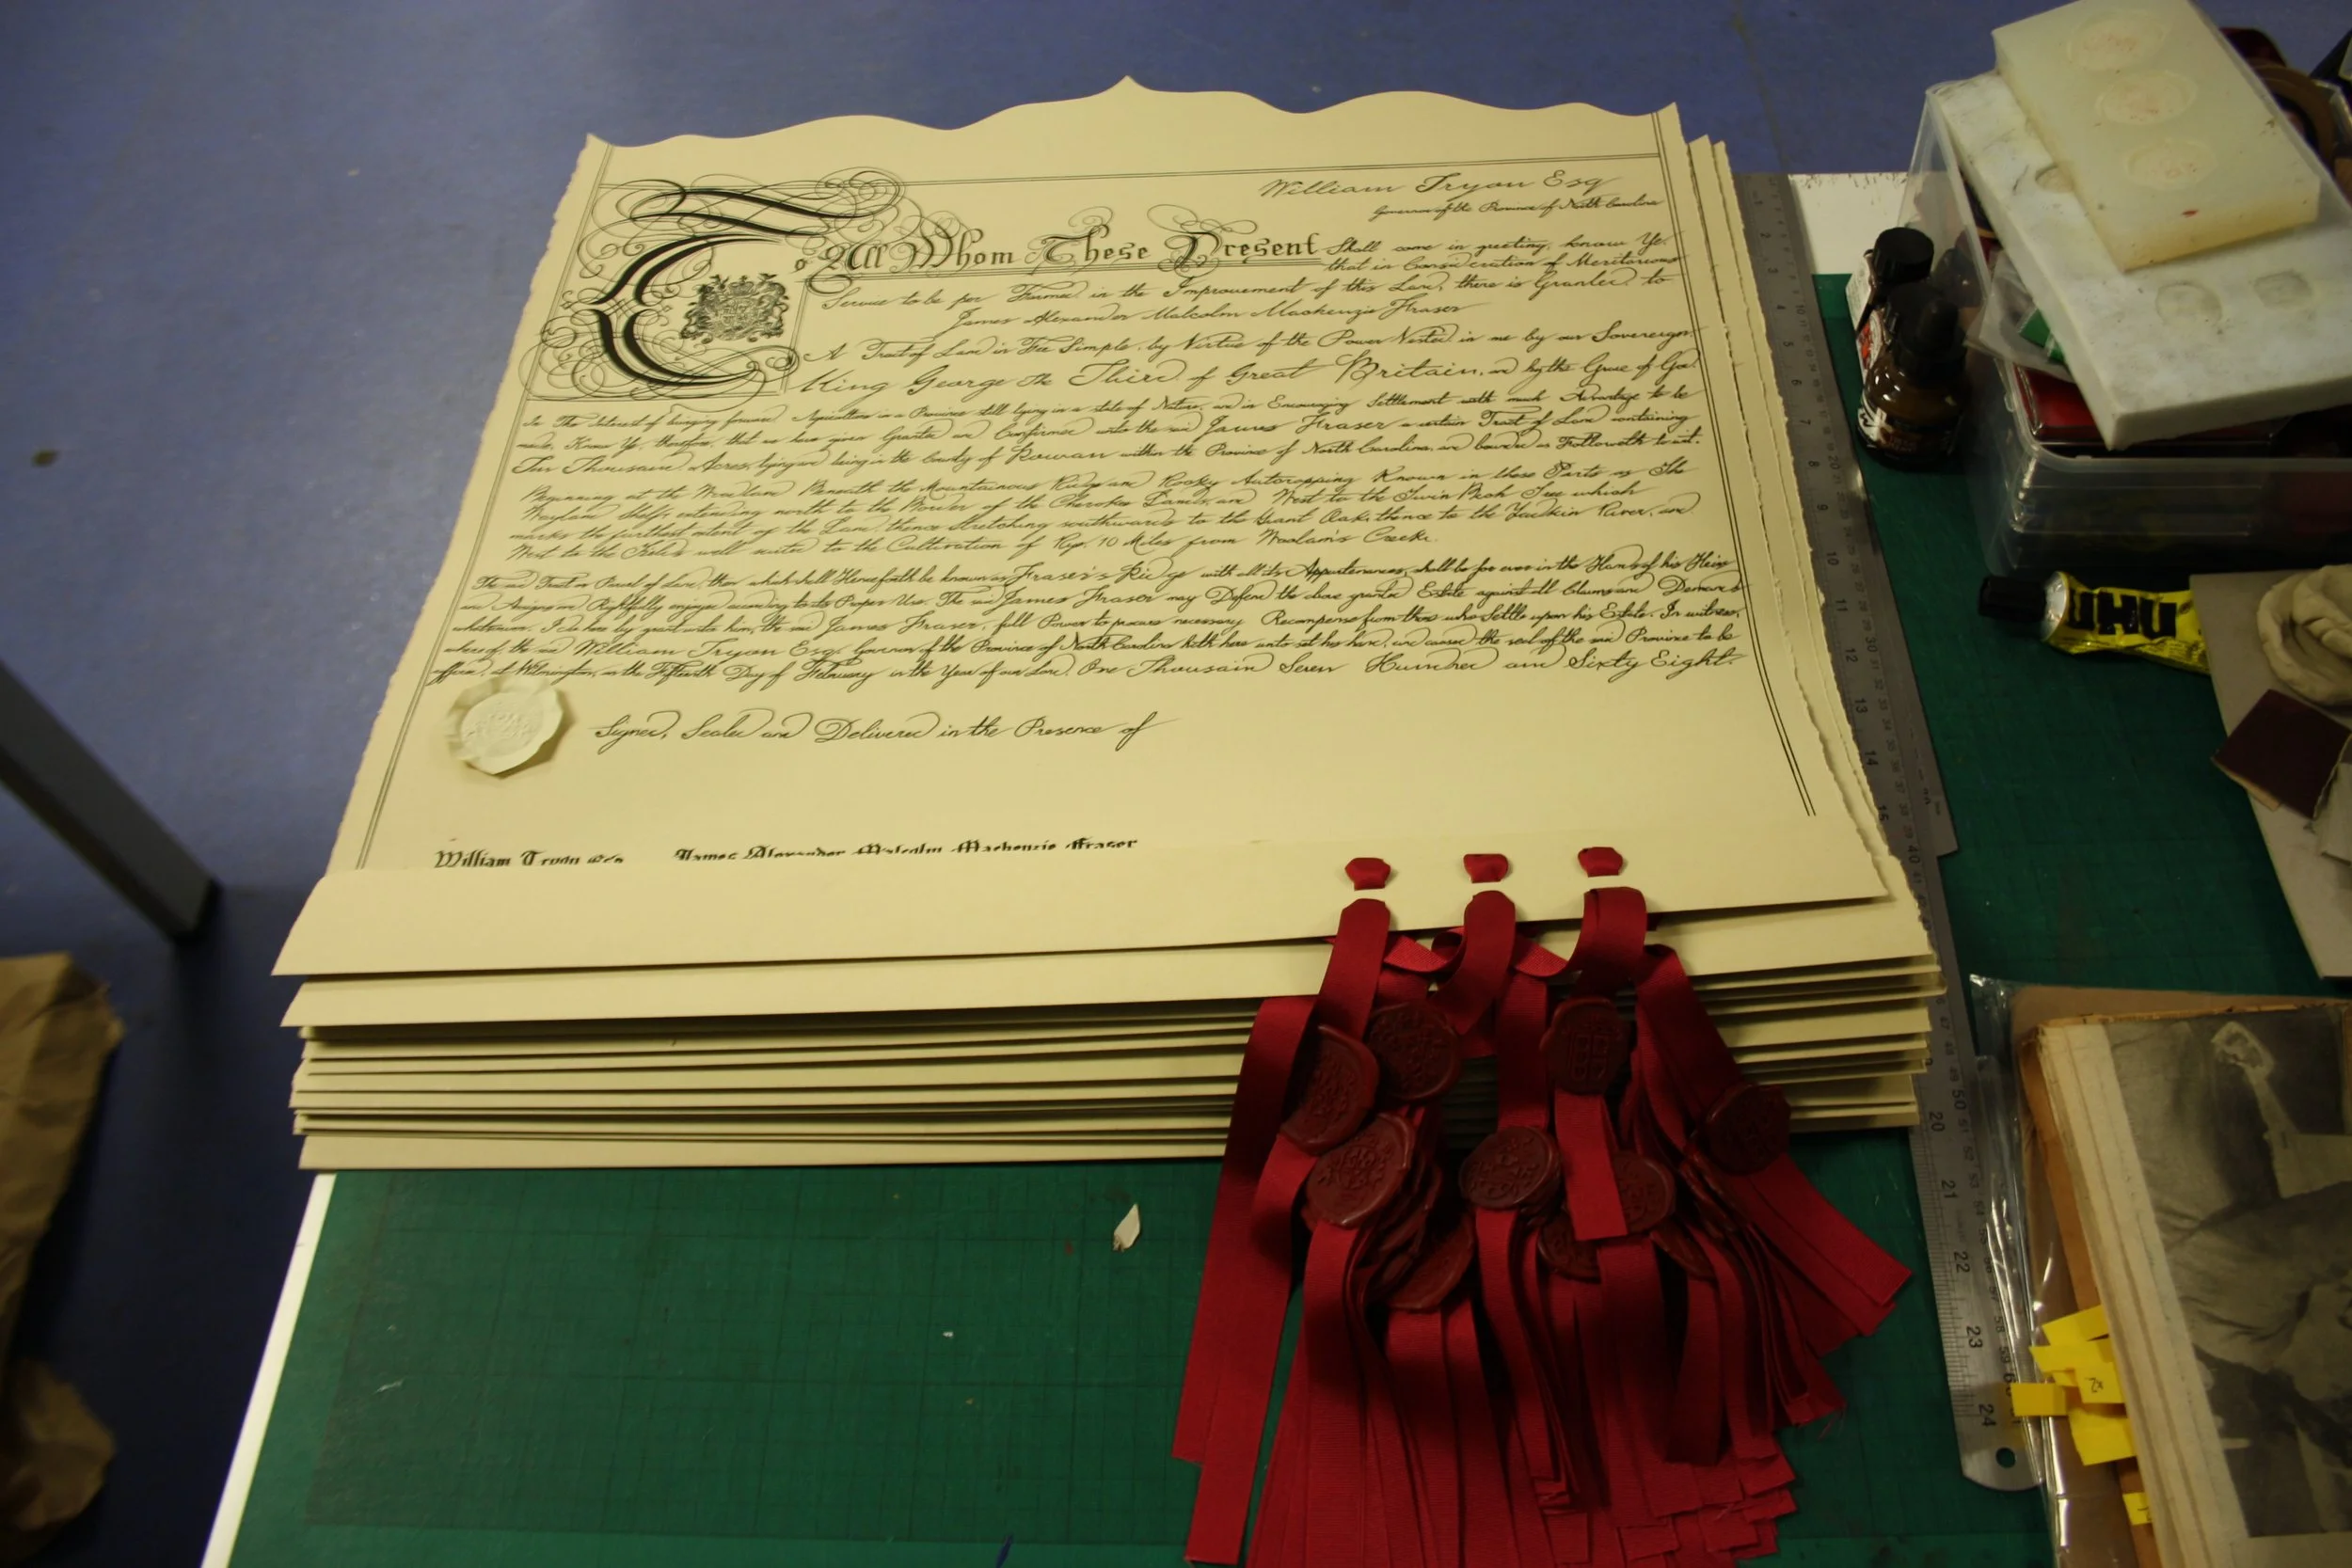 William Tryon Esq
Governor of the Province of North Carolina
To All Whom These Present Shall come in greeting, know Ye.
that in Consideration of Meritorious
Service to be per Formed in the Improvement of this Land, there is Granted to
James Alexander Malcolm Mackenzie Fraser
A Tract of Land in Fee Simple, by Virtue of the Power Vested in me by our Sovereign.
King George the Third of Great Britain, and by the Grace of God.
In The Interest of bringing forward Agriculture in a Province still lying in a state of Nature, and in Encouraging Settlement with much Advantage to be
made, Know Ye, therefore, that we have given Granted and Confirmed unto the said James Fraser a certain Tract of Land containing
Ten Thousand Acres, lying and being in the County of Rowan within the Province of North Carolina, and bounded as Followeth to wit.
Beginning at the Woodland Beneath the Mountainous Ridge and Rocky Outcropping Known in those Parts as The
Wayland Shelf, extending north to the Border of the Cherokee Lands, and West to the Twin Tree which
marks the furthest extent of the Land, thence stretching southwards to the Giant Oak, thence to the Yadkin River, and
West to the Fields well suited to the Cultivation of Rye, 10 Miles from Woolam's Creek.
The said Tract or Parcel of Land, then which shall Henceforth be known as Fraser's Ridge with all its Appurtenances, shall be for ever in the Hands of his Heirs
and Assigns and Rightfully enjoyed according to its Proper Use. The said James Fraser may Defend the above granted Estate against all Claims and Demands
whatsoever. I do here by grant unto him, the said James Fraser, full Power to procure necessary Recompense from those who Settle upon his Estate. In witness,
whereof, the said William Tryon Esq. Governor of the Province of North Carolina hath here unto set his hand, and caused the seal of the said Province to be
affixed, at Wilmington, on the Fifteenth Day of February in the Year of our Lord. One Thousand Seven Hundred and Sixty Eight.
Signed, Sealed and Delivered in the Presence of
William Tryon Esq James Alexander Malcolm Mackenzie Fraser
UHU